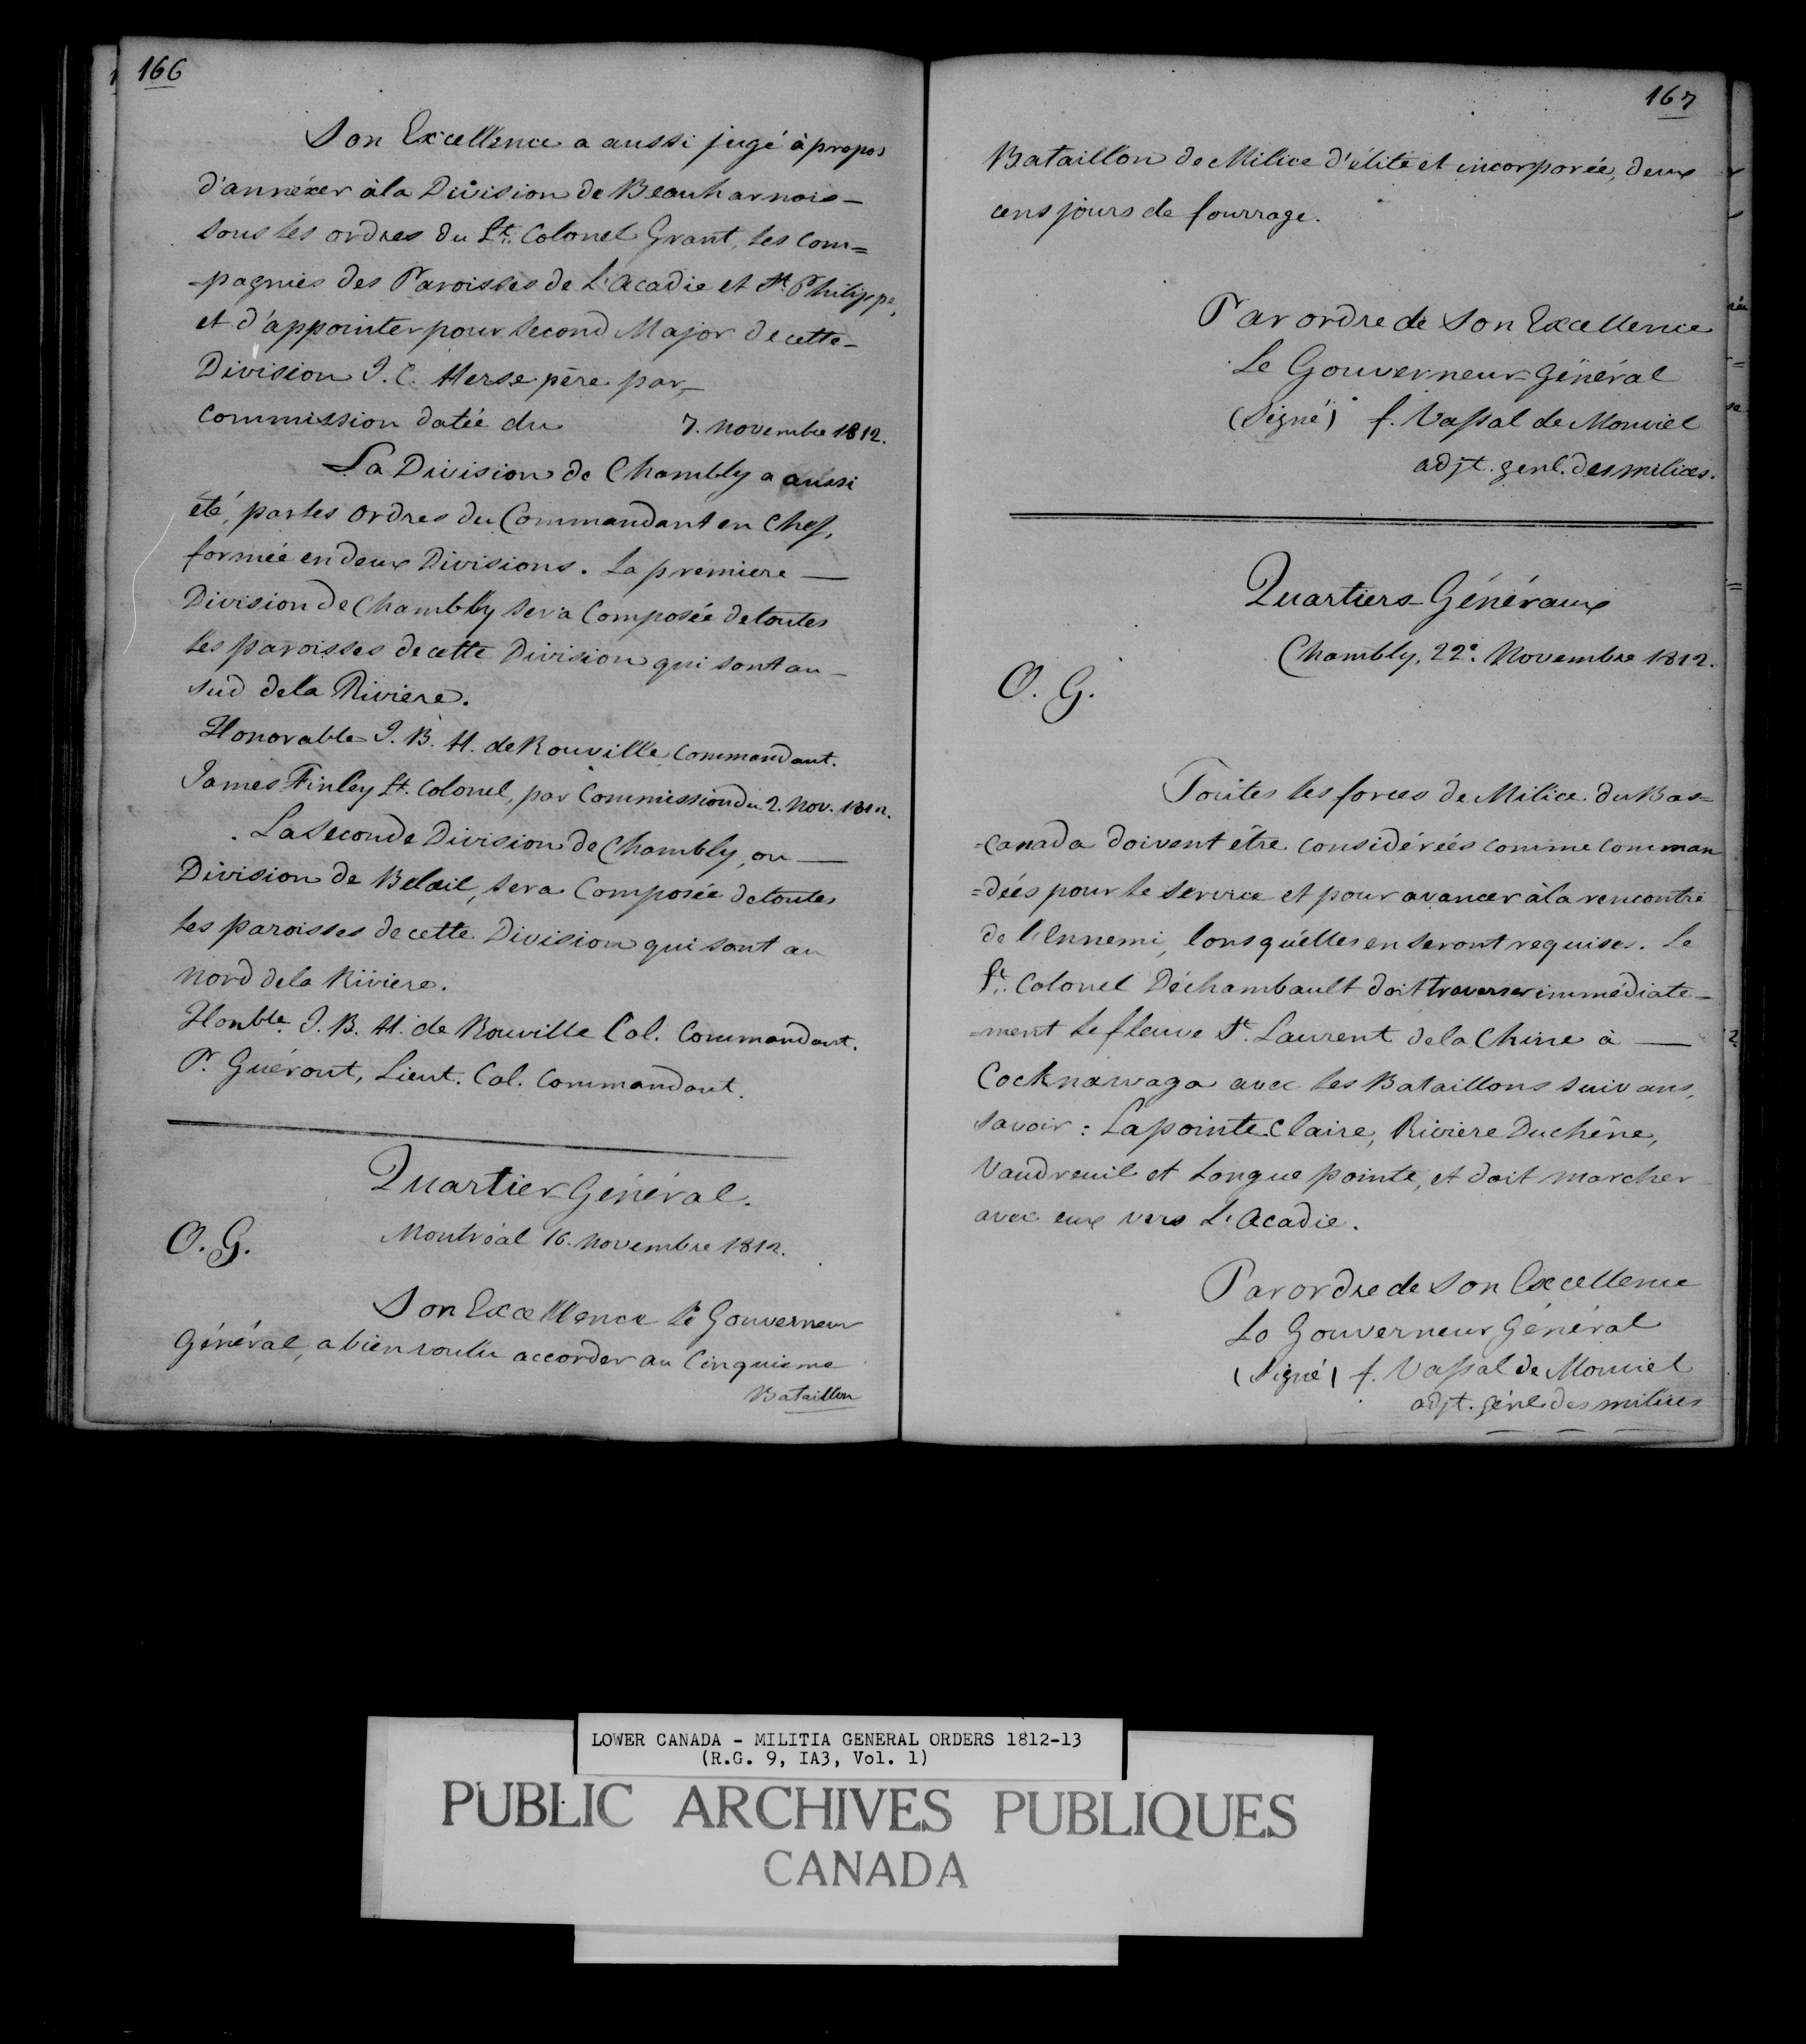 166
Son Excellence a aussi jugé à propos
d'annéxer à la Division de Beauharnois-
sous les ordres du Lt. Colonel Grant, les com=
-pagnies des Paroisses de L'Acadie et St. Philippe,
et d'appointer pour second Major de cette-
Division J. C. Herse père par-
commission datée du 7. novembre 1812.
La Division de Chambly a aussi
été, par les ordres du Commandant en Chef,
formée en deux Divisions. La premiere —
Division de Chambly sera Composée de toutes
les paroisses de cette Division qui sont au-
sud de la Riviere.
Honorable J. B. H. de Rouville Commandant.
James Finley Lt. Colonel, par Commission du 2. Nov. 1812.
La Seconde Division de Chambly, ou —
Division de Belœil, sera Composée de toutes
les paroisses de cette Division qui sont au
nord de la Riviere.
Honble. J. B. H. de Rouville Col. Commandant.
P. Guérout, Lieut. Col. Commandant.
Quartier-Général.
O. G. Montréal 16. novembre 1812.
Son Excellence le Gouverneur
Général, a bien voulu accorder au Cinquieme
Bataillon
167
Bataillon de Milice d'élite et incorporée, deux
cens jours de fourrage.
Par ordre de Son Excellence
Le Gouverneur-Général
(Signé) f. Vassal de Monviel
adjt. genl. des milices.
Quartiers-Généraux
Chambly, 22e. Novembre 1812.
O. G.
Toutes les forces de Milice du Bas=
-Canada doivent être considérées comme comman
=dées pour le service et pour avancer à la rencontre
de l'Ennemi, lorsqu'elles en seront requises. Le
Lt. Colonel Déchambault doit traverser immédiate-
-ment le fleuve St. Laurent de la Chine à —
Cocknawaga avec les Bataillons suivans,
savoir : Lapointe Claire, Riviere Duchêne,
Vaudreuil et Longue pointe, et doit marcher
avec eux vers L'Acadie.
Par ordre de Son Excellence
Le Gouverneur Général
(Signé) f. Vassal de Monviel
adjt. génl. des milices
LOWER CANADA - MILITIA GENERAL ORDERS 1812-13
(R.G. 9, IA3, Vol. 1)
PUBLIC ARCHIVES PUBLIQUES
CANADA